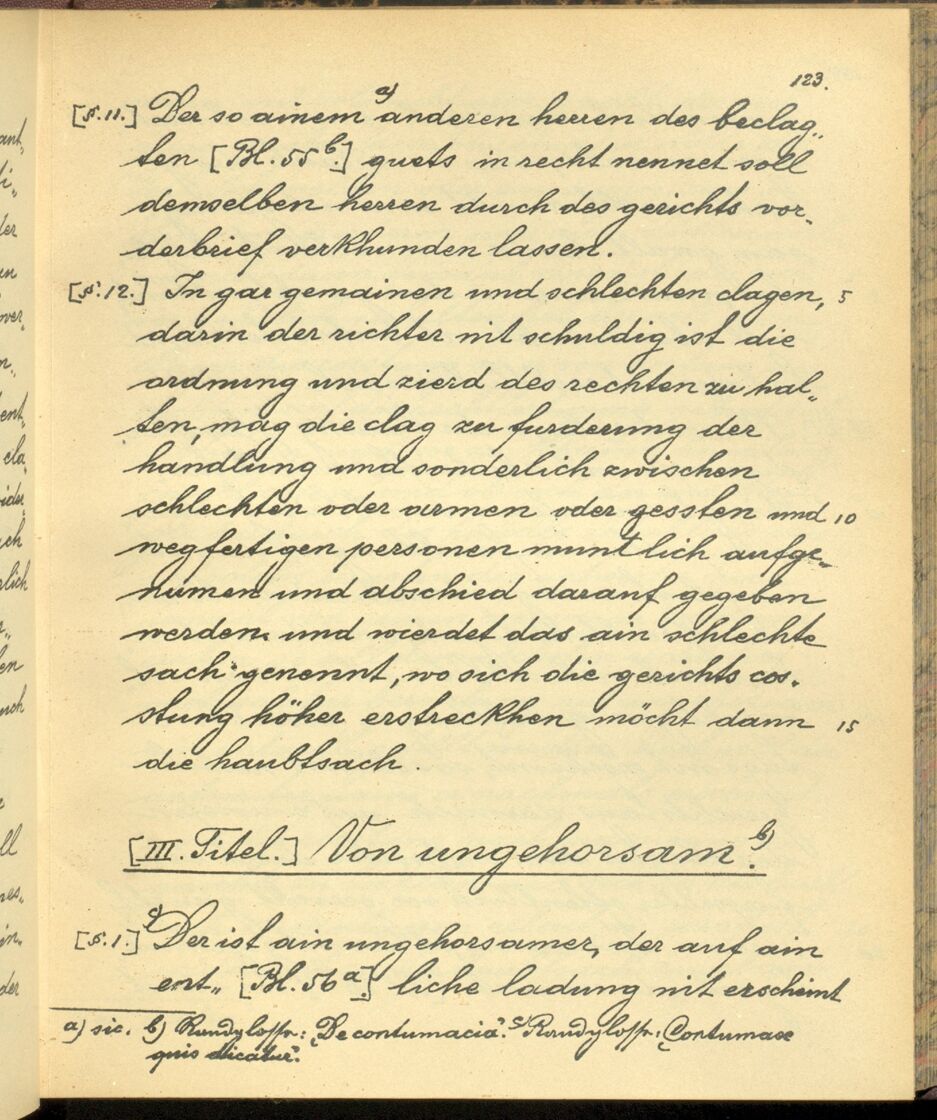 123.
[§.11.] Der so ainem a) anderen herren des beclag„
ten [Bl. 55 b.] guets in recht nennet soll
demselben herren durch des gerichts vor„
derbrief verkhunden lassen.
[§.12.] In gar gemainen und schlechten clagen, 5
darin der richter nit schuldig ist die
ordnung und zierd des rechten zu hal„
ten, mag die clag zu furderung der
handlung und sonderlich zwischen
schlechten oder armen oder gessten und 10
wegfertigen personen muntlich aufge„
numen und abschied darauf gegeben
werden. und wierdet das ain schlechte
sach genennt, wo sich die gerichts cos„
stung höher erstreckhen möcht dann 15
die haubtsach.
[III. Titel.] Von ungehorsam. b)
[§.1.] c) Der ist ain ungehorsamer, der auf ain
ent„ [Bl. 56 a.] liche ladung nit erscheint
a) sic. b) Randglosse: „De contumacia". c) Randglosse: „Contumax
quis dicatur".